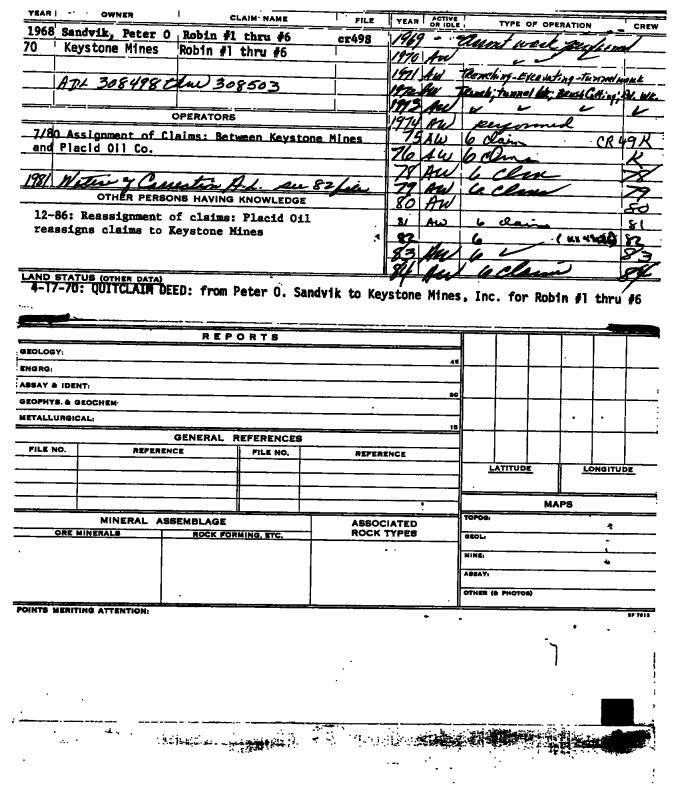 YEAR OWNER CLAIM NAME FILE
1968 Sandvik, Peter O Robin #1 thru #6 cr498
70 Keystone Mines Robin #1 thru #6
ADL 308498 thru 308503
OPERATORS
7/80 Assignment of Claims: Between Keystone Mines
and Placid Oil Co.
1981 Notice of Correction A.L. see 82 file
OTHER PERSONS HAVING KNOWLEDGE
12-86: Reassignment of claims: Placid Oil
reassigns claims to Keystone Mines
YEAR ACTIVE OR IDLE TYPE OF OPERATION CREW
1969 - work performed
1970 AW ✓ ✓
1971 AW Trenching-Excavating-Tunnel work
1972 AW Trench, tunnel Wk, Brush Cutting, Rd. Wk.
1973 AW ✓ ✓ ✓ ✓
1974 AW performed
75 AW 6 claim CR 49 K
76 AW 6 claims K
78 AW 6 clms 78
79 AW 6 claims 79
80 AW 80
81 AW 6 claims 81
82 6 82
83 AW 6 ✓ 83
84 AW 6 claims 84
LAND STATUS (OTHER DATA)
4-17-70: QUITCLAIM DEED: from Peter O. Sandvik to Keystone Mines, Inc. for Robin #1 thru #6
REPORTS
GEOLOGY: 45
ENGRG:
ASSAY & IDENT: 30
GEOPHYS. & GEOCHEM
METALLURGICAL: 15
GENERAL REFERENCES
FILE NO. REFERENCE FILE NO. REFERENCE
LATITUDE LONGITUDE
MAPS
TOPOG:
GEOL:
MINE:
ASSAY:
OTHER (& PHOTOS)
MINERAL ASSEMBLAGE ASSOCIATED ROCK TYPES
ORE MINERALS ROCK FORMING, ETC.
POINTS MERITING ATTENTION: